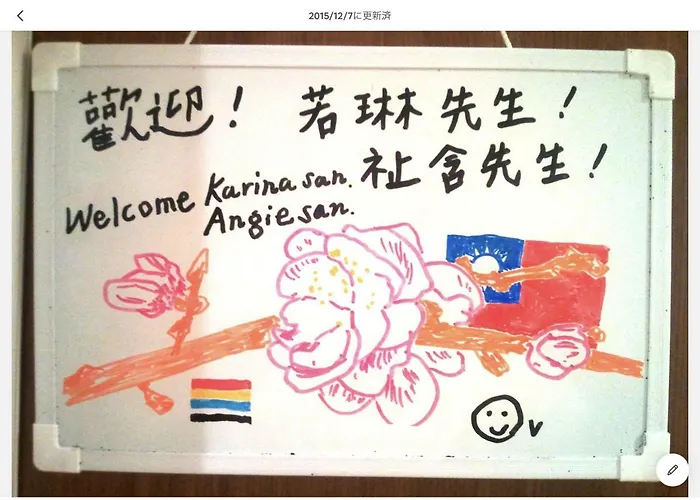 2015/12/7に更新済
歡迎! 若琳先生!
祉含先生!
Welcome Karina san.
Angie san.